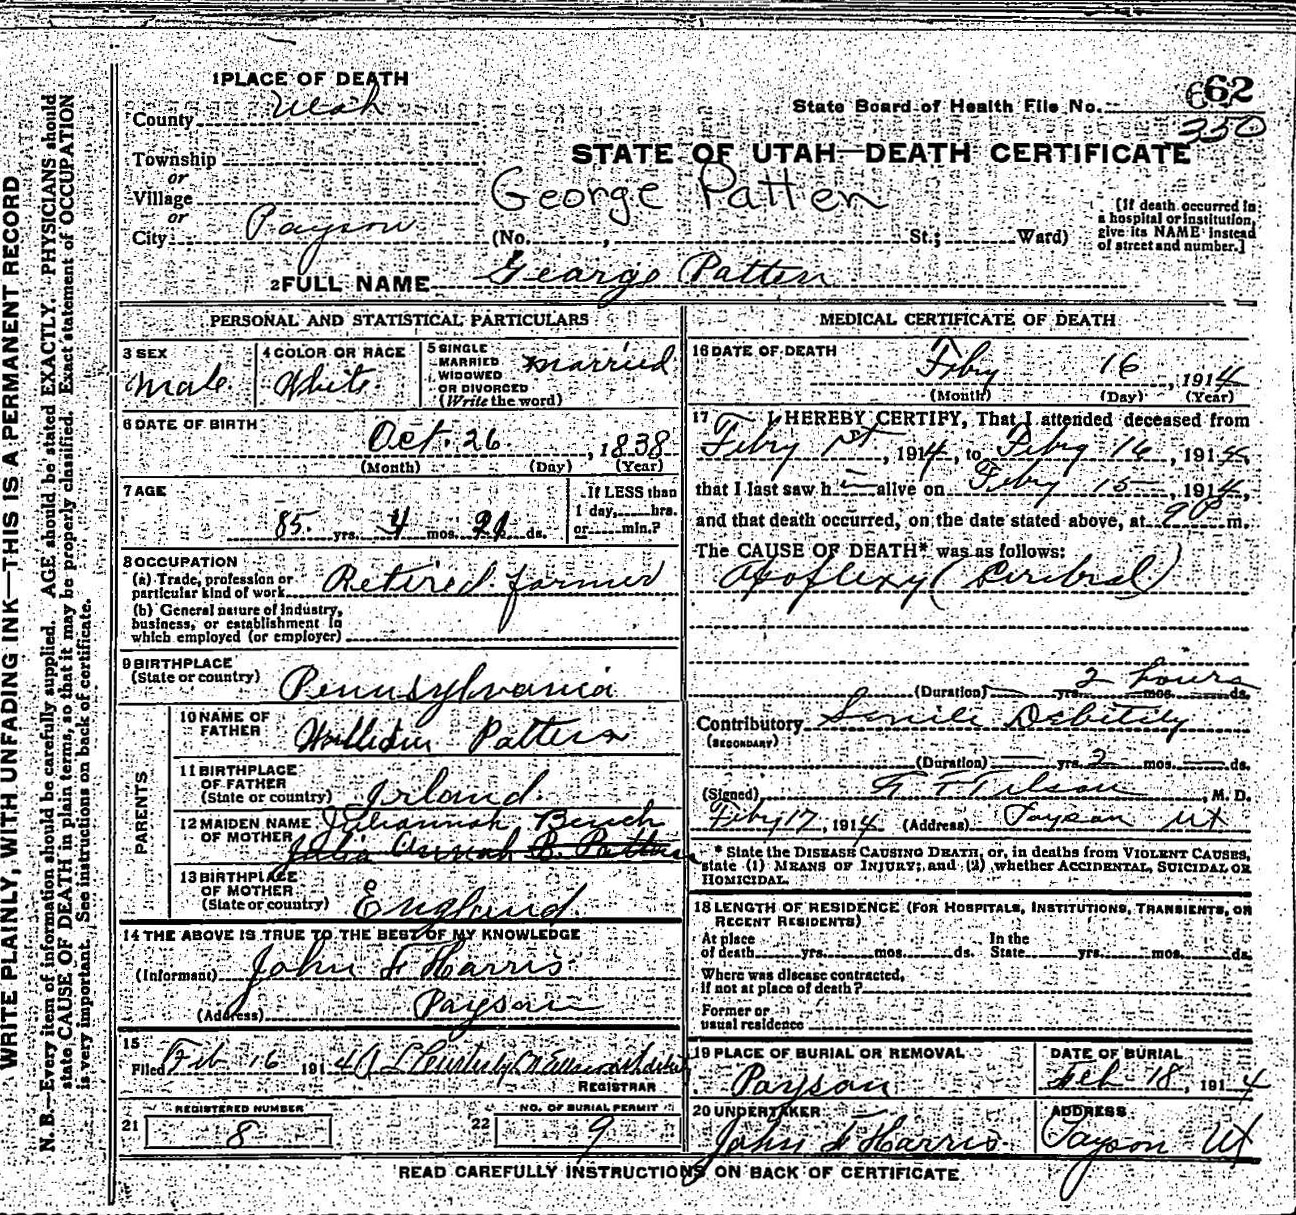 1 PLACE OF DEATH
County Utah
State Board of Health File No. 62
350
Township
or
STATE OF UTAH—DEATH CERTIFICATE
Village
or
George Patten
City Payson (No. , St.; Ward)
(If death occurred in
a hospital or institution,
give its NAME instead
of street and number.]
2 FULL NAME George Patten
PERSONAL AND STATISTICAL PARTICULARS
3 SEX
Male
4 COLOR OR RACE
White
5 SINGLE
MARRIED
WIDOWED
OR DIVORCED
(Write the word)
married
6 DATE OF BIRTH
Oct. 26 , 1838
(Month) (Day) (Year)
7 AGE
85 yrs. 4 mos. 21 ds.
If LESS than
1 day, hrs.
or min.?
8 OCCUPATION
(a) Trade, profession or
particular kind of work Retired farmer
(b) General nature of industry,
business, or establishment in
which employed (or employer)
9 BIRTHPLACE
(State or country) Pennsylvania
PARENTS
10 NAME OF
FATHER William Patten
11 BIRTHPLACE
OF FATHER
(State or country) Irland.
12 MAIDEN NAME
OF MOTHER Juliannah Bench
Julia Annah B. Patten
13 BIRTHPLACE
OF MOTHER
(State or country) England.
14 THE ABOVE IS TRUE TO THE BEST OF MY KNOWLEDGE
(Informant) John F Harris
(Address) Payson
15
Filed Feb 16 1914
REGISTRAR
21 REGISTERED NUMBER
8
22 NO. OF BURIAL PERMIT
9
MEDICAL CERTIFICATE OF DEATH
16 DATE OF DEATH
Febry 16 , 1914
(Month) (Day) (Year)
17 I HEREBY CERTIFY, That I attended deceased from
Febry 1st , 1914, to Febry 16 , 191
that I last saw h alive on Febry 15 , 1914,
and that death occurred, on the date stated above, at 9 P m.
The CAUSE OF DEATH* was as follows:
Apoflexy (Ceribral)
(Duration) yrs. mos. ds. 2 hours
Contributory Senile Debetily
(SECONDARY)
(Duration) yrs. 2 mos. ds.
(Signed) Tilson , M. D.
Febry 17, 1914 (Address) Payson Ut
* State the DISEASE CAUSING DEATH, or, in deaths from VIOLENT CAUSES,
state (1) MEANS OF INJURY; and (2) whether ACCIDENTAL, SUICIDAL OR
HOMICIDAL.
18 LENGTH OF RESIDENCE (FOR HOSPITALS, INSTITUTIONS, TRANSIENTS, OR
RECENT RESIDENTS)
At place
of death yrs. mos. ds.
In the
State yrs. mos. ds.
Where was disease contracted,
if not at place of death?
Former or
usual residence
19 PLACE OF BURIAL OR REMOVAL
Payson
DATE OF BURIAL
Feb 18, 1914
20 UNDERTAKER
John F Harris
ADDRESS
Payson Ut
READ CAREFULLY INSTRUCTIONS ON BACK OF CERTIFICATE
WRITE PLAINLY, WITH UNFADING INK—THIS IS A PERMANENT RECORD
N. B.—Every item of information should be carefully supplied. AGE should be stated EXACTLY. PHYSICIANS should
state CAUSE OF DEATH in plain terms, so that it may be properly classified. Exact statement of OCCUPATION
is very important. See instructions on back of certificate.